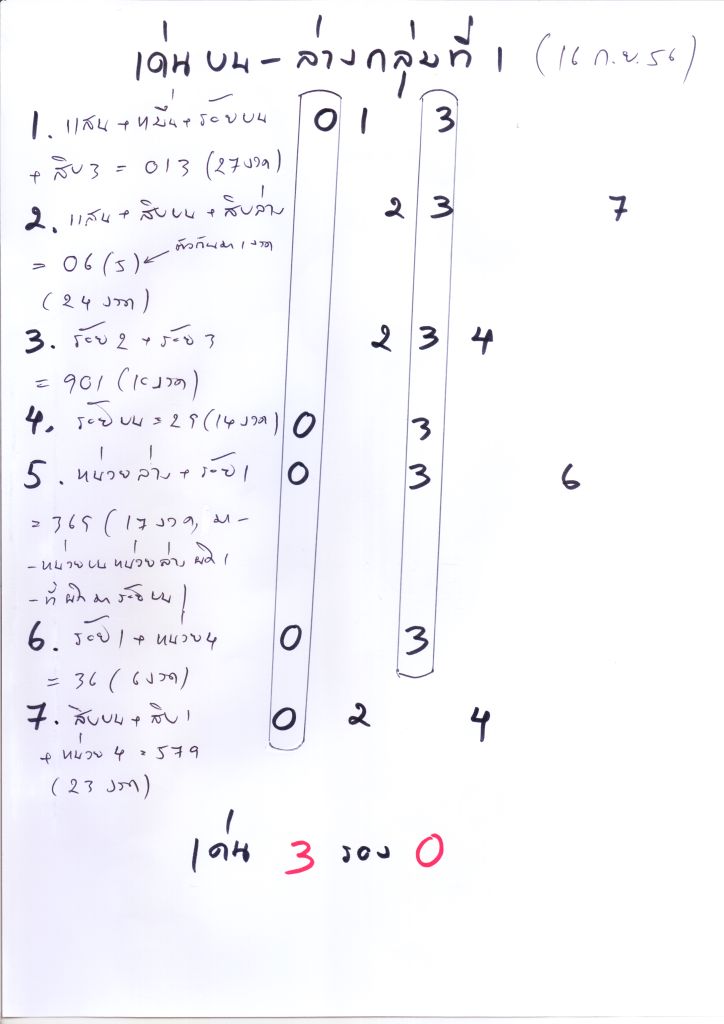 เด่น บน - ล่างกลุ่มที่ 1 (16 ก.ย. 56)
1. แสน + หมื่น + ร้อยบน 0 1 3
+ สิบ 3 = 013 (27 งวด)
2. แสน + สิบบน + สิบล่าง 2 3 7
= 06 (5) ← ตัวกันมา 1 งวด
(24 งวด)
3. ร้อย 2 + ร้อย 3 2 3 4
= 901 (10 งวด)
4. ร้อยบน = 29 (14 งวด) 0 3
5. หน่วยล่าง + ร้อย 1 0 3 6
= 369 (17 งวด, มา -
- หน่วยบน หน่วยล่าง ผิด 1
- ที่ ผิด มา ร้อยบน)
6. ร้อย 1 + หน่วย 4 0 3
= 36 (6 งวด)
7. สิบบน + สิบ 1 0 2 4
+ หน่วย 4 = 579
(23 งวด)
เด่น 3 รอง 0